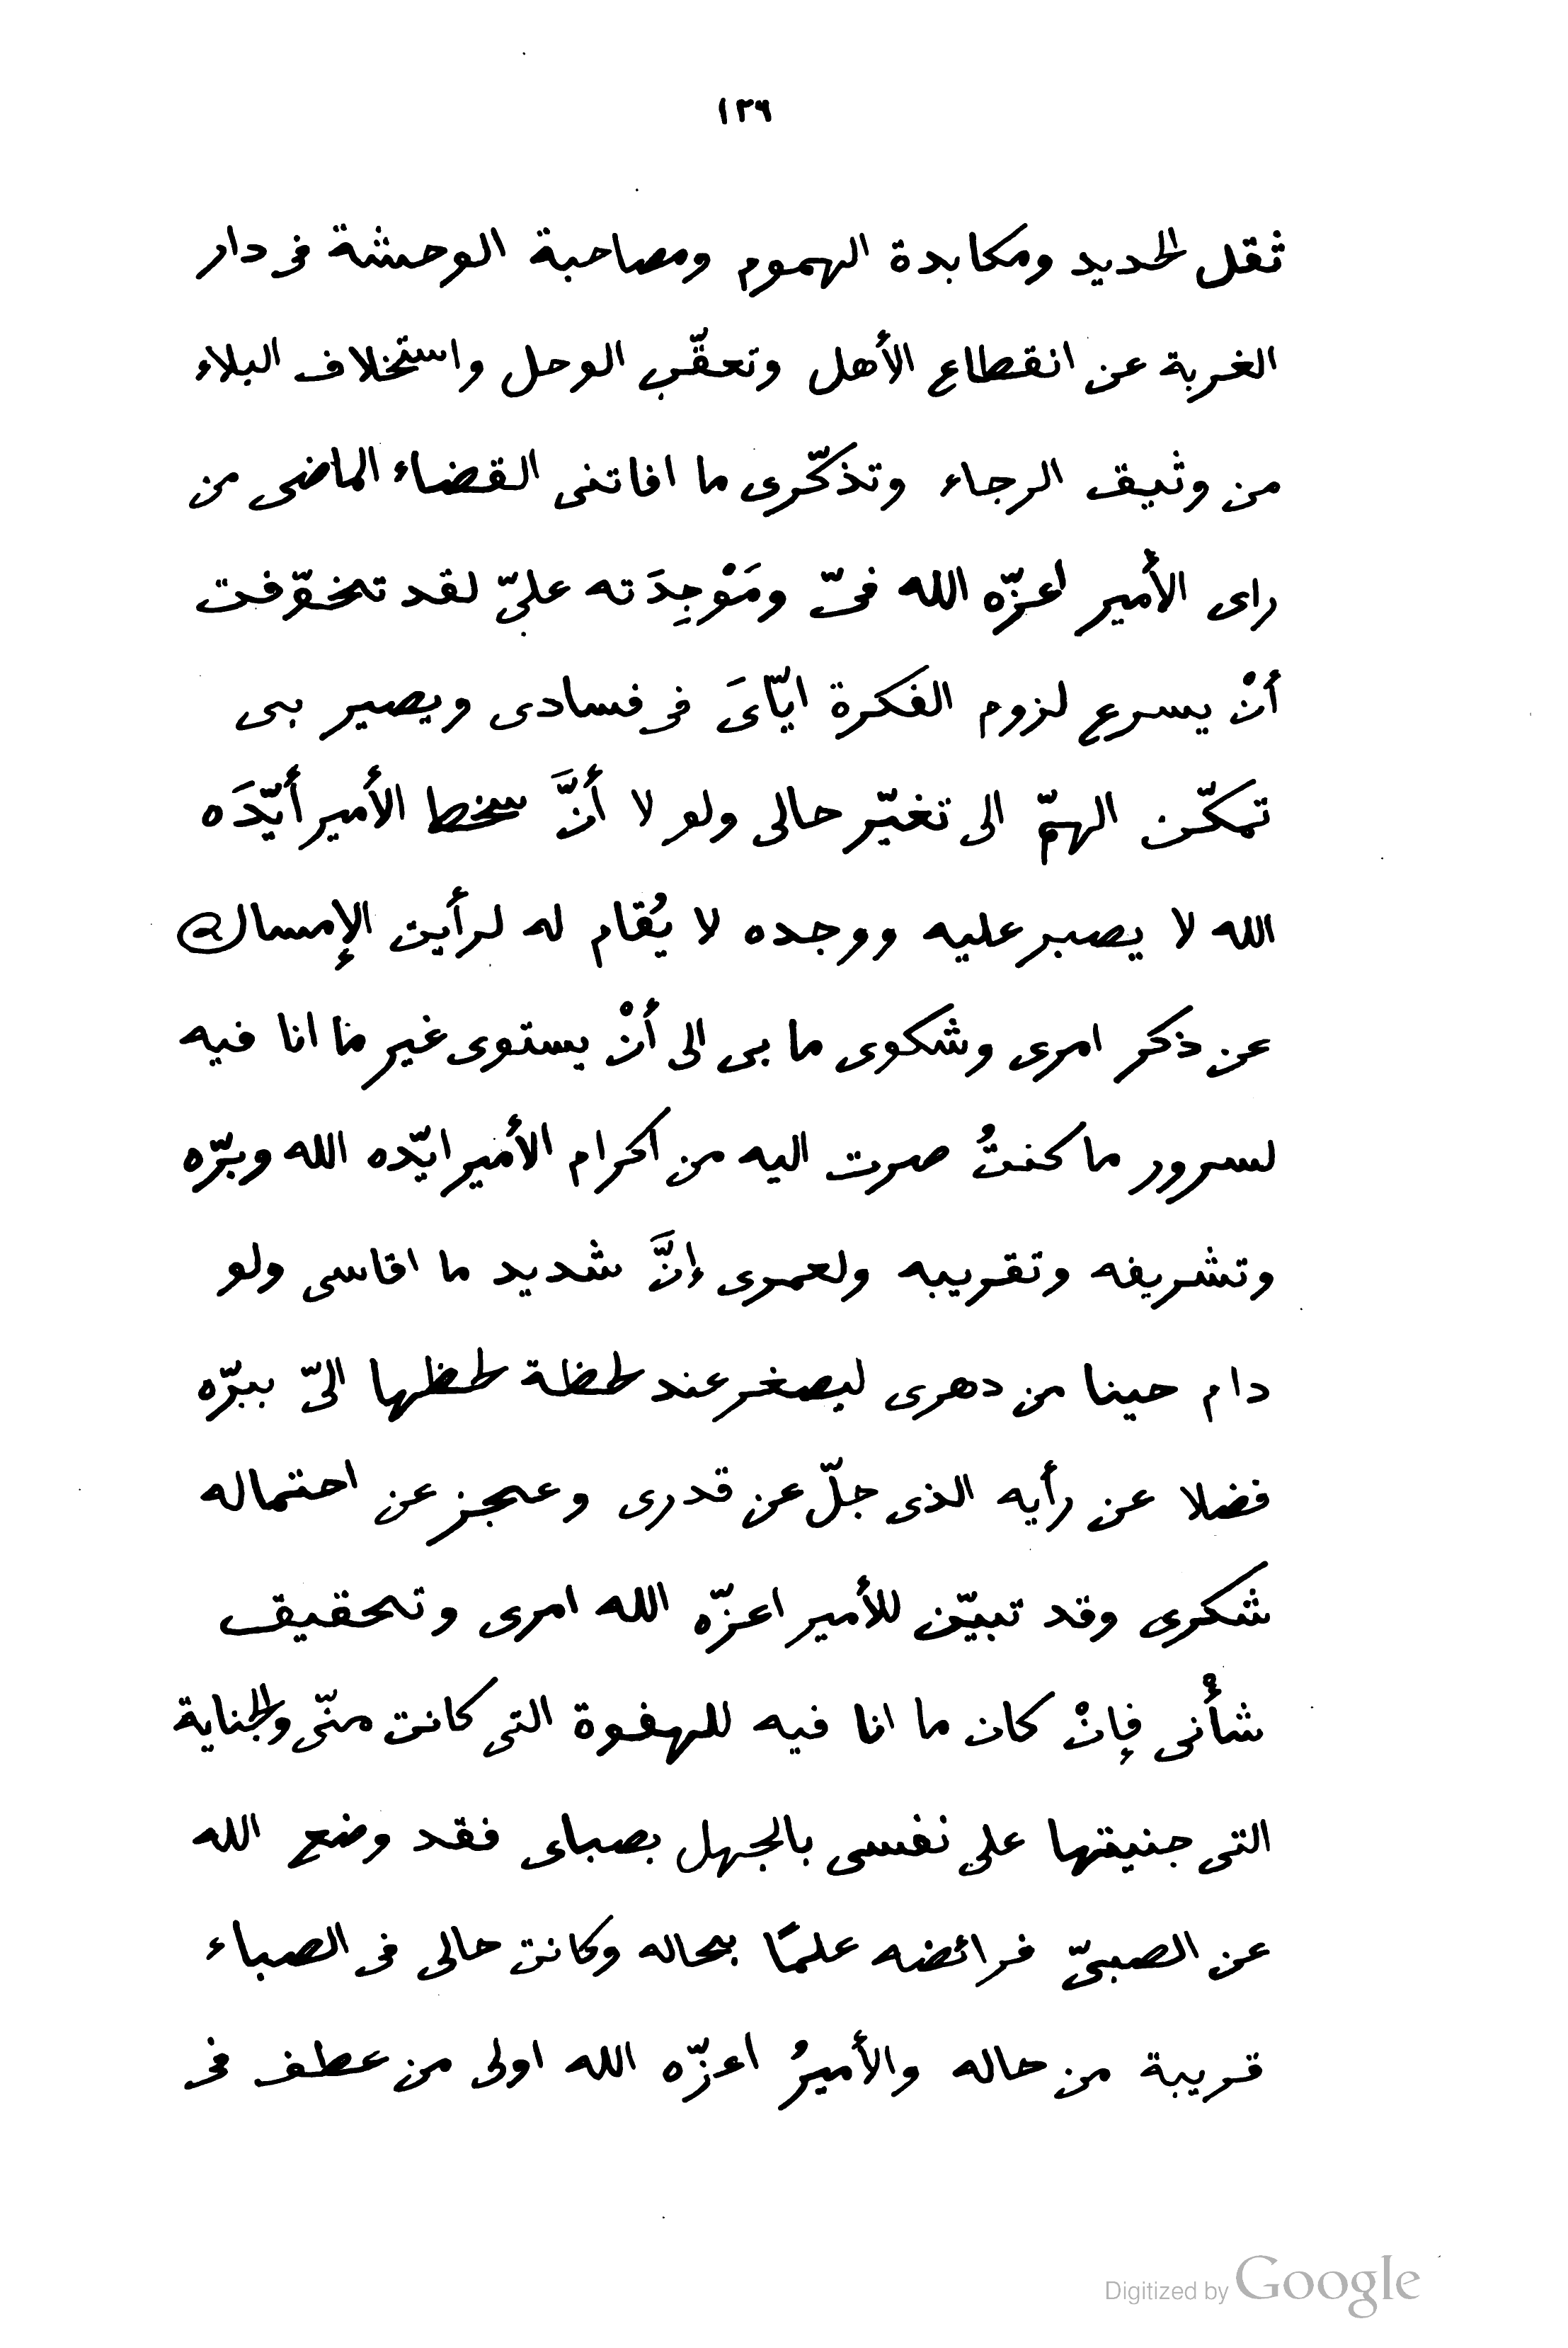 ١٢٦
ثقل الحديد ومكابدة الهموم ومصاحبة الوحشة فى دار
الغربة عن انقطاع الأهل وتعقّب الوحل واستخلاف البلاء
من وثيق الرجاء وتذكّرى ما افاتنى القضاء الماضى من
راى الأمير اعزّه الله فىّ ومَوْجِدَته علىّ لقد تخوّفت
أنْ يسرع لزوم الفكرة ايّاىَ فى فسادى ويصير بى
تمكّن الهمّ الى تغيّر حالى ولو لا أنَّ سخط الأمير أيّدَه
الله لا يصبر عليه ووجده لا يُقام له لرأيت الإمساك
عن ذكر امرى وشكوى ما بى الى أنْ يستوى غير ما انا فيه
لسرور ما كنتُ صرت اليه من اكرام الأمير ايّده الله وبرّه
وتشريفه وتقريبه ولعمرى إنَّ شديد ما اقاسى ولو
دام حينا من دهرى ليصغر عند لحظة لحظها الىّ ببرّه
فضلا عن رأيه الذى جلّ عن قدرى وعجز عن احتماله
شكرى وقد تبيّن للأمير اعزّه الله امرى وتحقيق
شأنى فإنْ كان ما انا فيه للهفوة التى كانت منّى والجناية
التى جنيتها على نفسى بالجهل بصباى فقد وضع الله
عن الصبىّ فرائضه علمًا بحاله وكانت حالى فى الصباء
قريبة من حاله والأميرُ اعزّه الله اولى من عطف فى
Digitized by Google